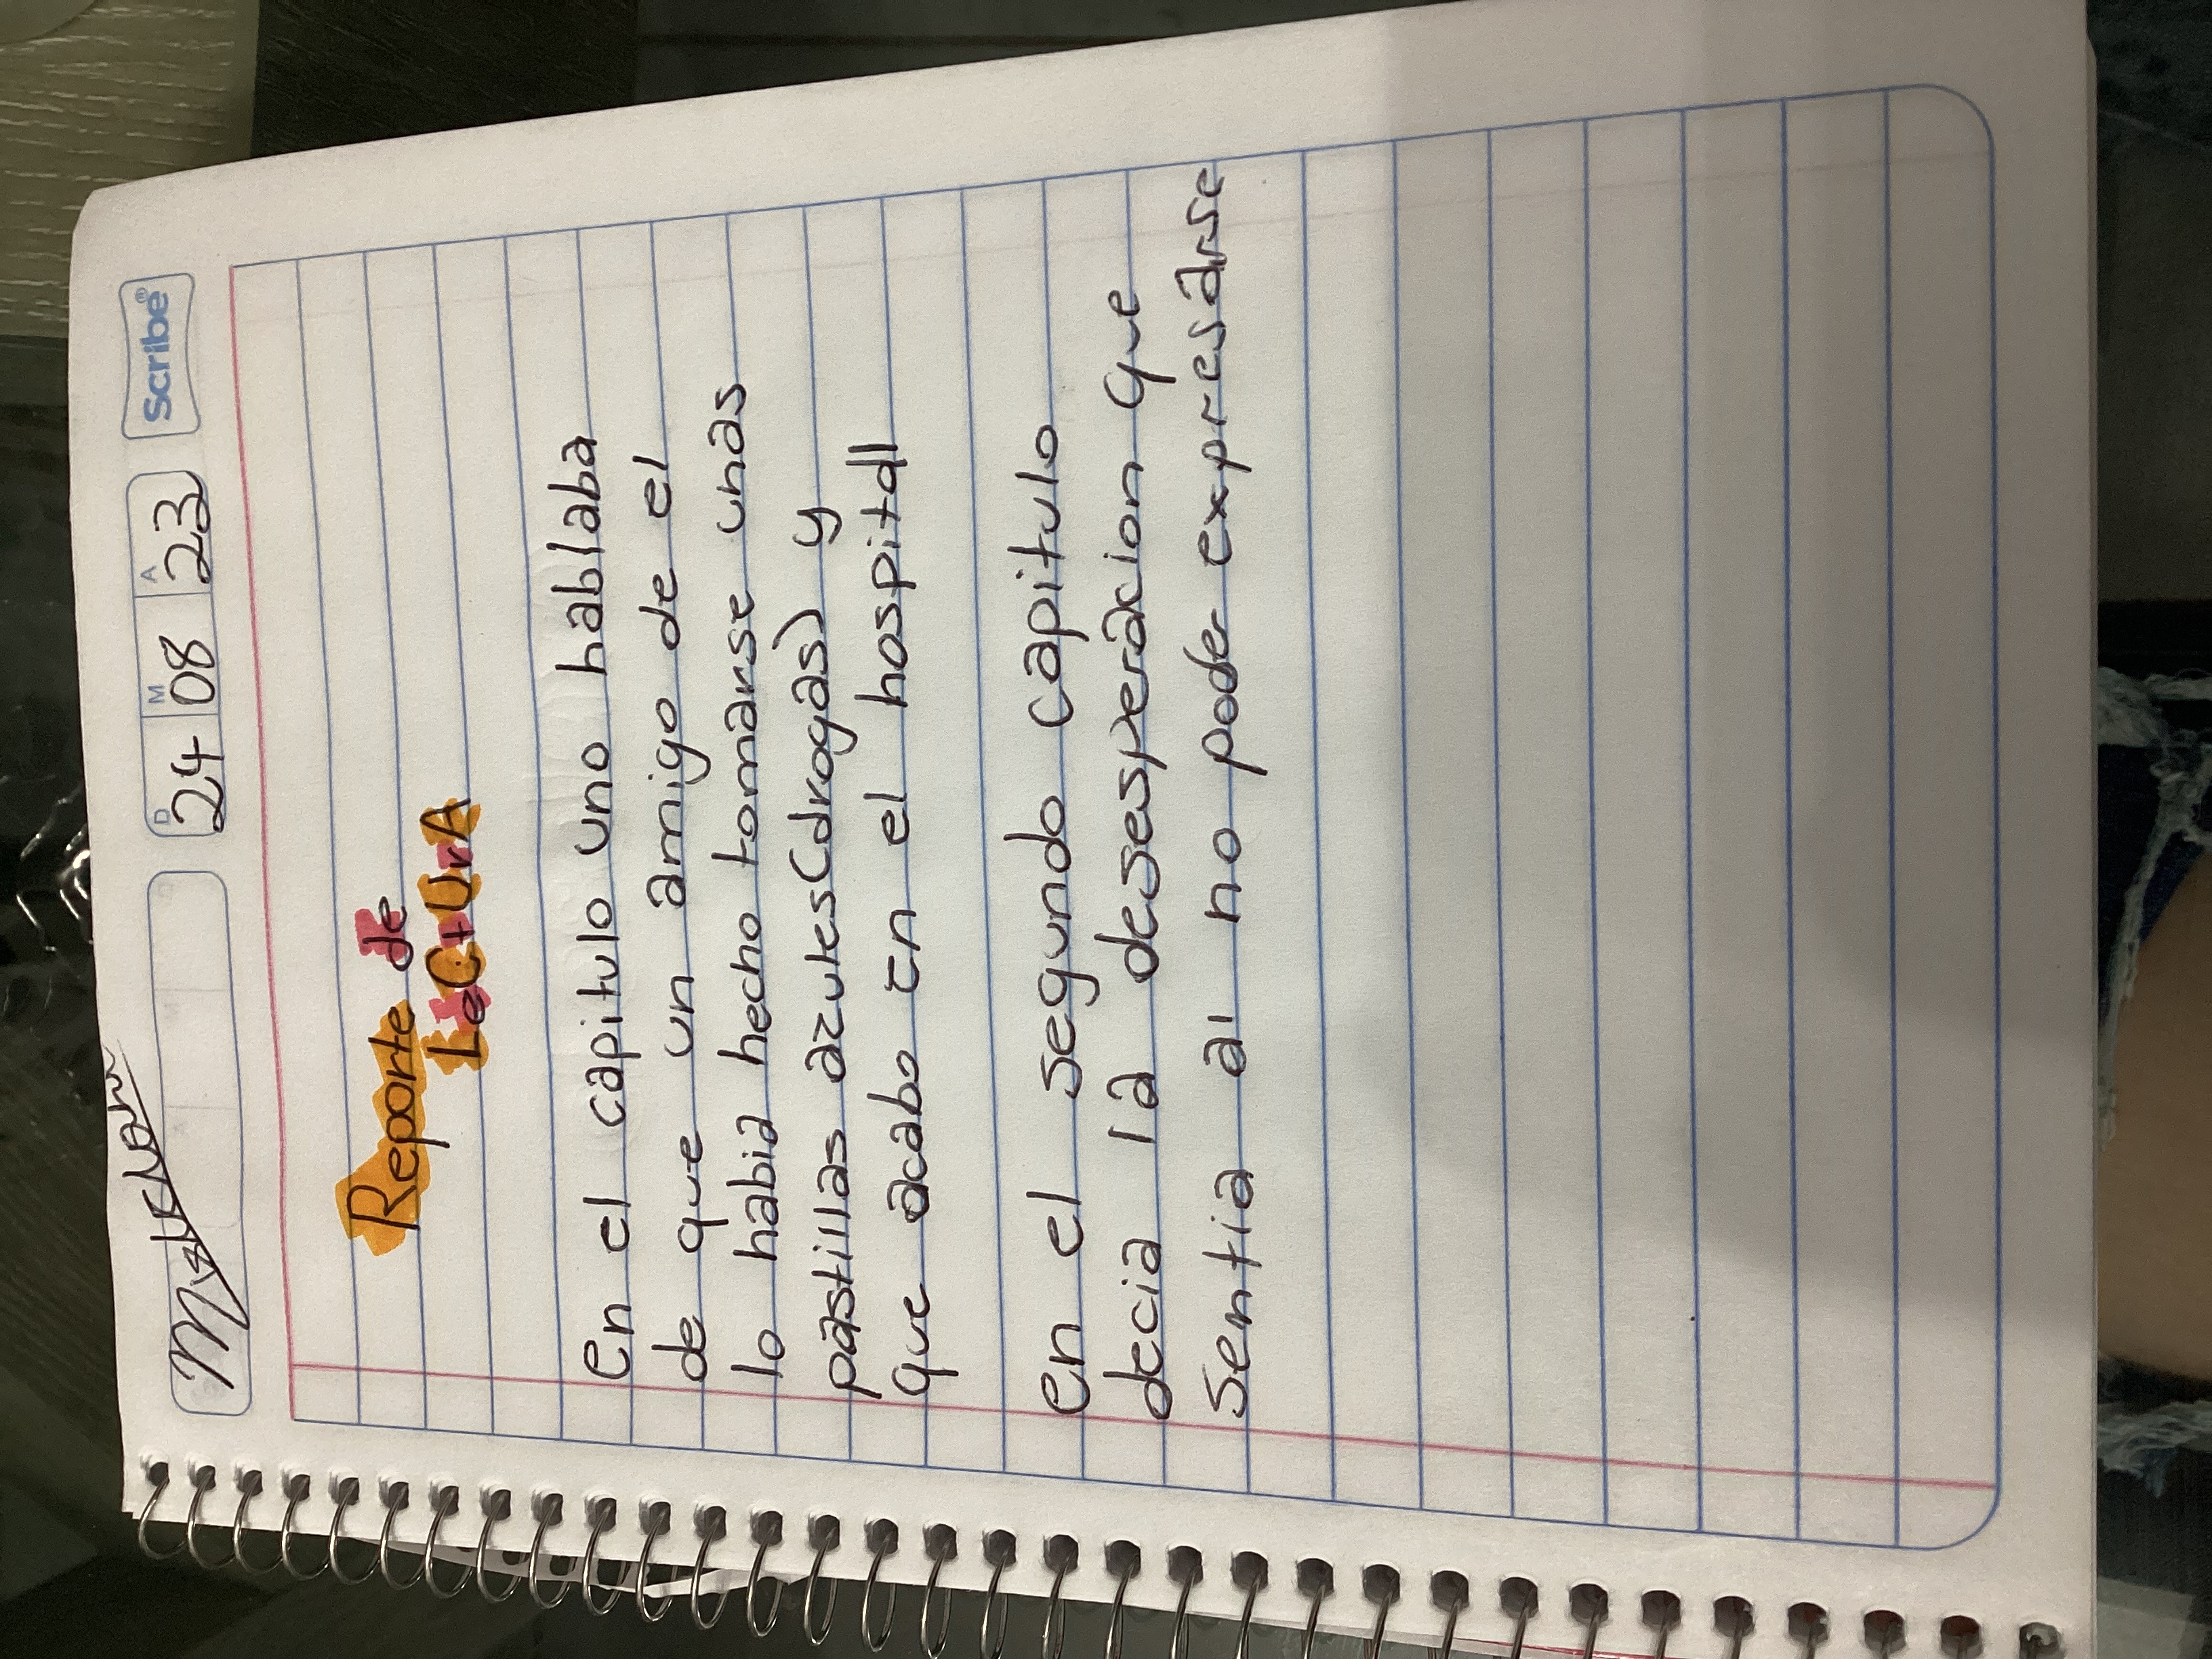 D M A
24 08 23
Scribe®
Reporte de
LeCtUrA
En el capitulo uno hablaba
de que un amigo de el
lo habia hecho tomarse unas
pastillas azules (drogas) y
que acabo en el hospital
En el segundo capitulo
decia la desesperacion que
sentia al no poder expresarse